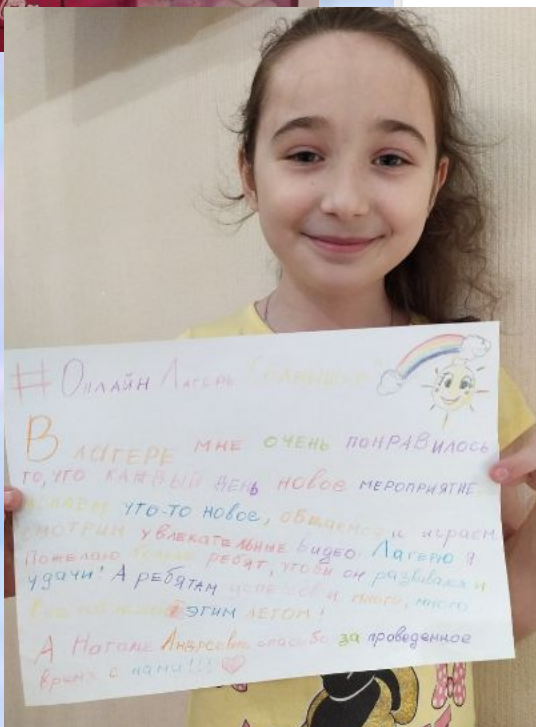 # Онлайн Лагерь "Солнышко"
В лагере мне очень понравилось
то, что каждый день новое мероприятие.
что-то новое, общаемся, играем
смотрим увлекательные видео. Лагерю я
пожелаю больше ребят, чтобы он развивался и
удачи! А ребятам успехов и много, много
этим летом!
А Наталье Андреевне спасибо за проведенное
время с нами!!!